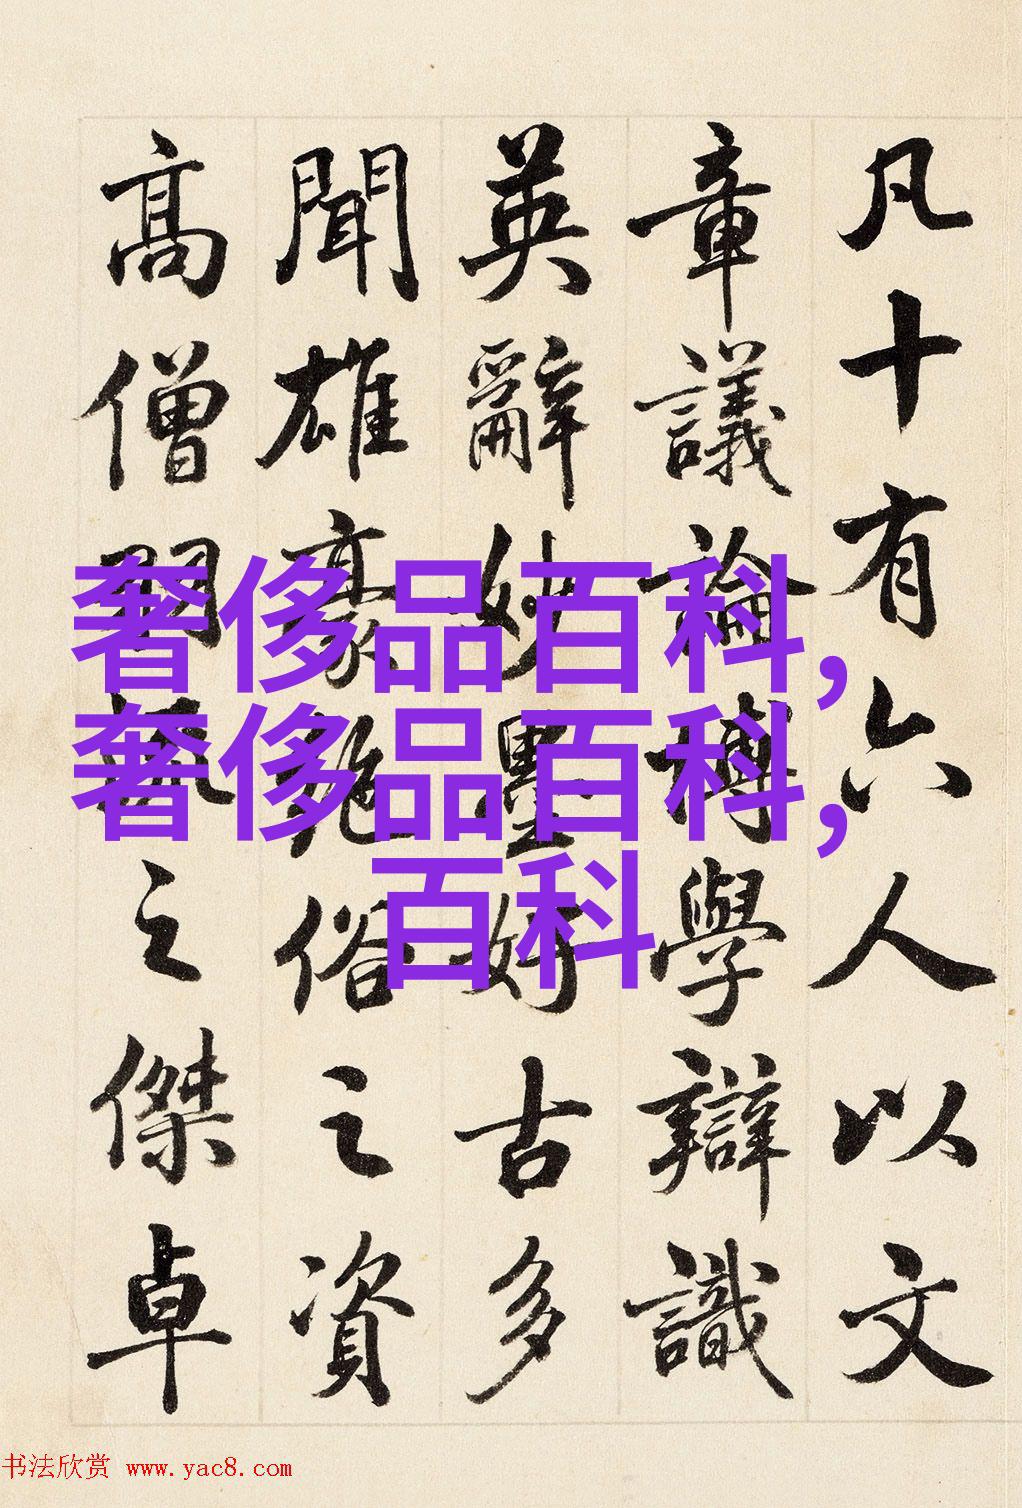 凡十有六人以文
章議論博學辯識
英辭妙墨好古多
聞雄豪絕俗之資
高僧羽流之傑卓
奢侈品百科,
奢侈品百科,
百科
书法欣赏 www.yac8.com